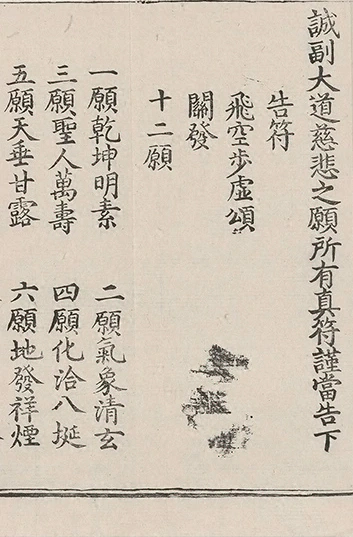 誠副大道慈悲之願所有真符謹當告下
告符
飛空步虛頌
關發
十二願
一願乾坤明素　二願氣象清玄
三願聖人萬壽　四願化洽八挻
五願天垂甘露　六願地發祥煙